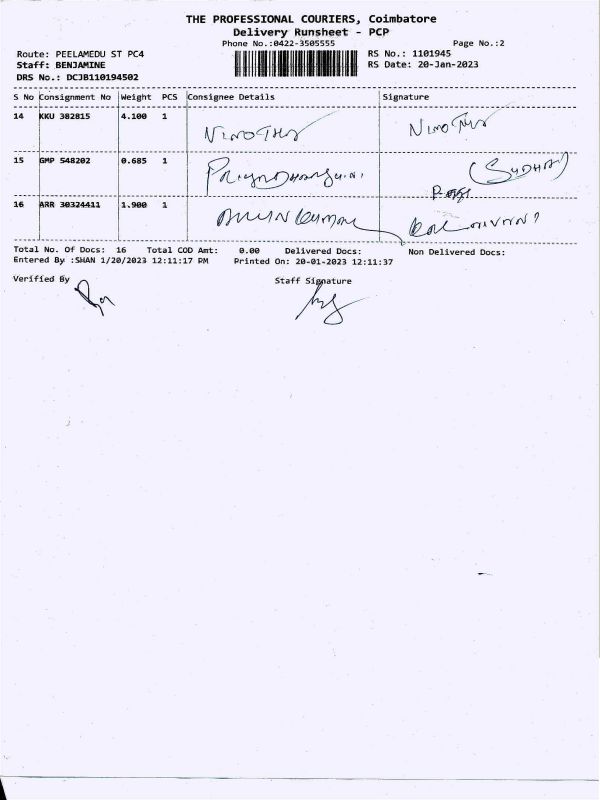 THE PROFESSIONAL COURIERS, Coimbatore
Delivery Runsheet - PCP
Phone No.:0422-3505555 Page No.:2
Route: PEELAMEDU ST PC4 RS No.: 1101945
Staff: BENJAMINE RS Date: 20-Jan-2023
DRS No.: DCJB110194502
S No Consignment No Weight PCS Consignee Details Signature
14 KKU 382815 4.100 1
15 GMP 548202 0.685 1 (SUDHA)
16 ARR 30324411 1.900 1
Total No. Of Docs: 16 Total COD Amt: 0.00 Delivered Docs: Non Delivered Docs:
Entered By :SHAN 1/20/2023 12:11:17 PM Printed On: 20-01-2023 12:11:37
Verified By Staff Signature